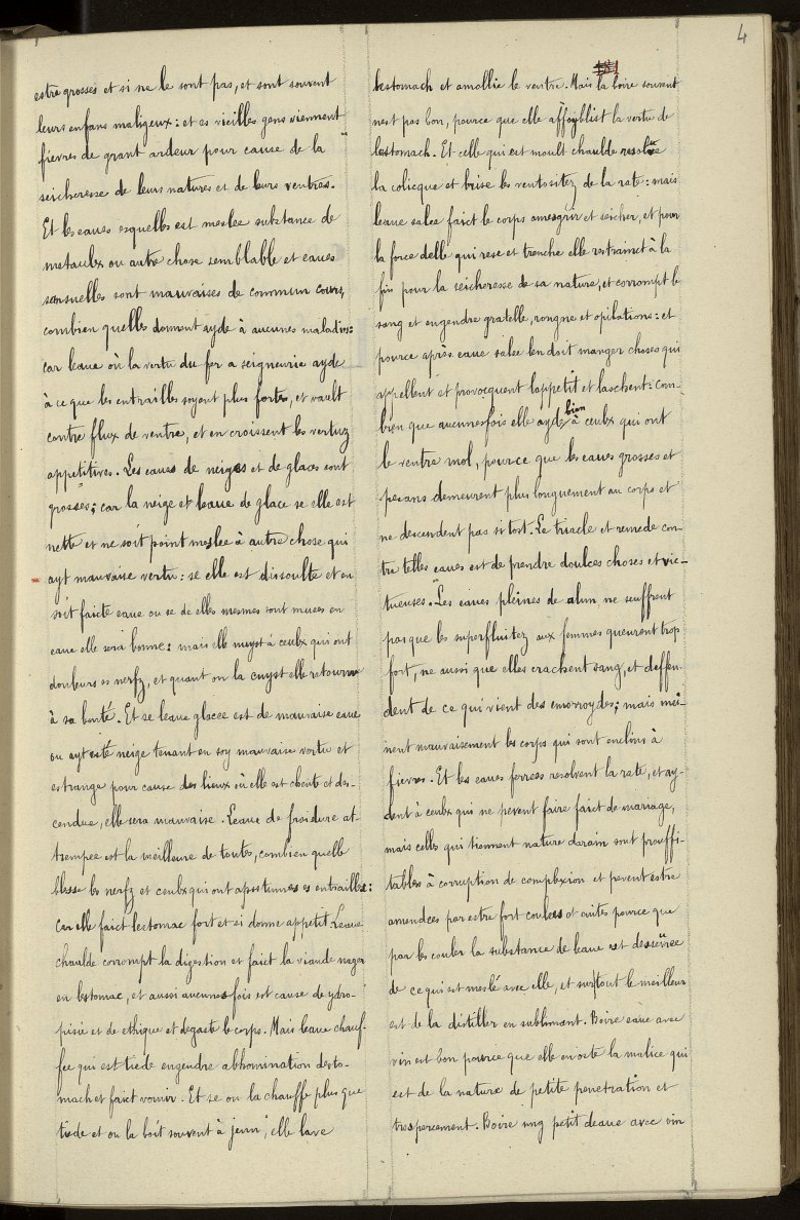 4
estre grosses et si ne le sont pas, et sont souvent
leurs enfans maligeux : et es vieilles gens viennent
fievres de grant ardeur pour cause de la
seicheresse de leurs natures et de leurs ventres.
Et les eaues esquelles est meslee substance de
metaulx ou autre chose semblable et eaues
sensuelles sont mauvaises de commun cours,
combien quelles donnent ayde à aucunes maladies :
car leaue où la vertu du fer a seigneurie ayde
à ce que les entrailles soyent plus fortes, et vault
contre flux de ventre, et en croissent les vertuz
appetitives. Les eaues de neiges et de glaces sont
grosses ; car la neige et leaue de glace se elle est
nette et ne soit point meslee à autre chose qui
ayt mauvaise vertu : se elle est dissoulte et en
soit faicte eaue ou se de elles mesmes sont muees en
eaue elle sera bonne : mais elle nuyst à ceulx qui ont
douleurs es nerfz, et quant on la cuyst elle retourne
à sa bonté. Et se leaue glacee est de mauvaise eaue
ou ayt esté neige tenant en soy mauvaise vertu et
estrange pour cause des lieux où elle est cheute et des-
cendue, elle sera mauvaise. Leaue de froidure at-
trempee est la meilleure de toutes, combien quelle
blesse les nerfz et ceulx qui ont apostumes es entrailles :
Car elle faict lestomac fort et si donne appetit. Leaue
chaulde corrompt la digestion et faict la viande nager
en lestomac, et aussi aucunes fois est cause de ydro-
pisie et de ethique et degaste le corps. Mais leaue chauf-
fee qui est tiede engendre abhomination desto-
mach et faict vomir. Et se on la chauffe plus que
tiede et on la boit souvent à jeun, elle lave
lestomach et amollie le ventre. Mais la boire souvent
nest pas bon, pource que elle affoyblist la vertu de
lestomach. Et celle qui est moult chaulde resolve
la colicque et brise les ventositez de la rate : mais
leaue salee faict le corps amesgrir et seicher, et pour
la force delle qui rese et trenche elle restrainct à la
fin pour la seicheresse de sa nature, et corrompt le
sang et engendre gratelle, rongne et opilations : et
pource après eaue salee len doit manger choses qui
appellent et provocquent lappetit et laschent : com-
bien que aucunesfois elle ayde bien à ceulx qui ont
le ventre mol, pource que les eaues grosses et
pesans demeurent plus longuement au corps et
ne descendent pas si tost. Le triacle et remede con-
tre telles eaues est de prendre doulces choses et vic-
tueuses. Les eaues pleines de alun ne seuffrent
pas que les superfluitez aux femmes queurent trop
fort, ne aussi que elles crachent sang, et deffen-
dent de ce qui vient des emorroydes ; mais mei-
nent mauvaisement les corps qui sont enclins à
fievres. Et les eaues ferrees resolvent la rate, et ay-
dent à ceulx qui ne pevent faire faict de mariage,
mais celles qui tiennent nature darain sont prouffi-
tables à corruption de complexion et pevent estre
amendees par estre fort coulees et cuites pource que
par les couler la substance de leaue est dessevree
de ce qui est meslé avec elle, et surtout le meilleur
est de la distiller en sublimant. Boire eaue avec
vin est bon pource que elle en oste la malice qui
est de la nature de petite penetration et
trespercement. Boire ung petit deaue avec vin